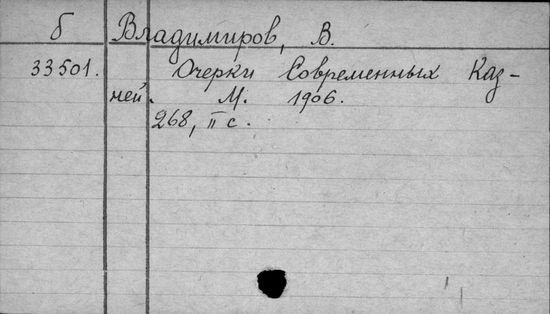 б Владимиров, В.
33501. Очерки Современных Каз-
ней. М. 1906.
268, II с.